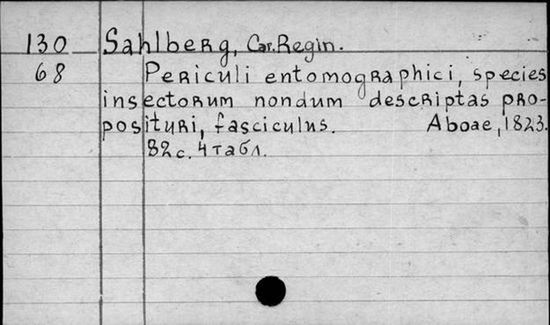 130 Sahlberg, Car. Regin.
68 Periculi entomographici, species
insectorum nondum descriptas pro-
posituri, fasciculus. Aboae, 1823.
82 с. 4 табл.